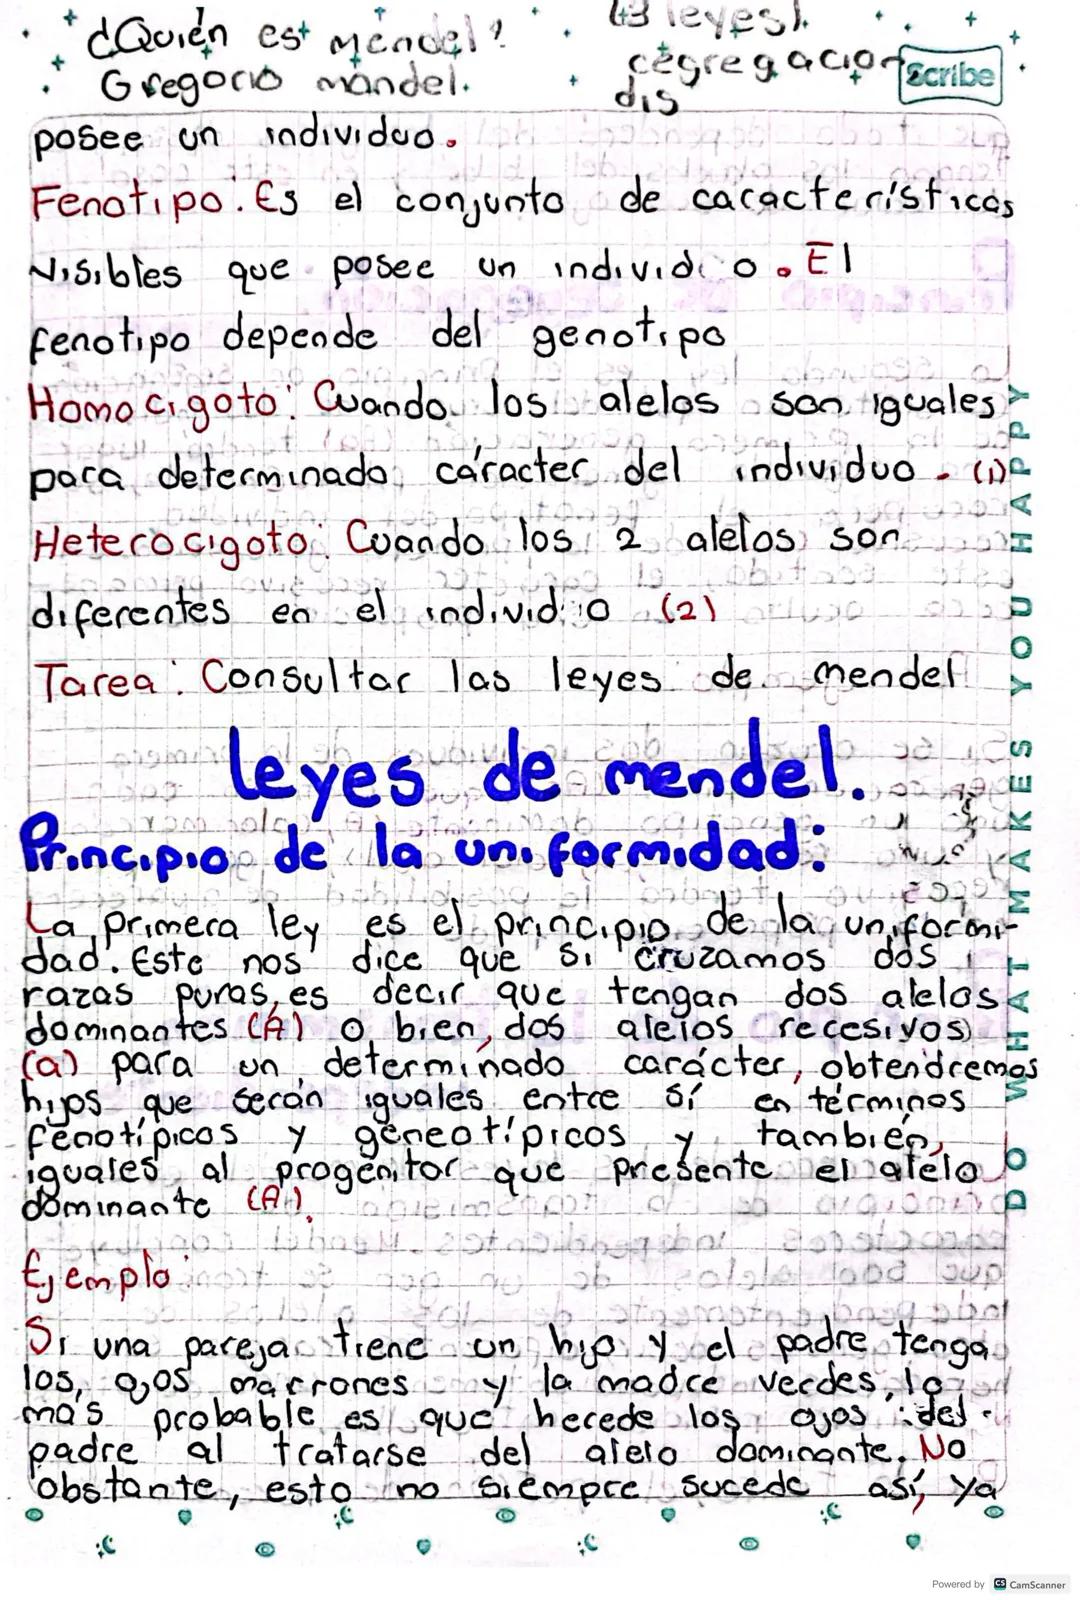 ¿Quién est mendel?
Gregorio mandel.
(3 leyes).
cegregacion
dis
Scribe
posee un individuo.
Fenotipo: Es el conjunto de características
visibles que posee un individuo. El
fenotipo depende del genotipo
Homocigoto: Cuando los alelos son iguales
para determinado cáracter del individuo. (1)
Heterocigoto: Cuando los 2 alelos son
diferentes en el individuo (2)
Tarea: Consultar las leyes de mendel
leyes de mendel.
Principio de la uniformidad:
La primera ley es el principio de la uniformi-
dad. Este nos dice que si cruzamos dos
razas puras, es decir que tengan dos alelos
dominantes (A) o bien, dos alelos recesivos
(a) para un determinado carácter, obtendremos
hijos que serán iguales entre sí en términos
fenotípicos y géneotípicos y también,
iguales al progenitor que presente el alelo
dominante (A).
Ejemplo:
Si una pareja tiene un hijo y el padre tenga
los, ojos marrones y la madre verdes, lo
más probable es que herede los ojos del
padre al tratarse del alelo dominante. No
obstante, esto no siempre sucede así, ya
DO WHAT MAKES YOU HAPPY
Powered by CS CamScanner